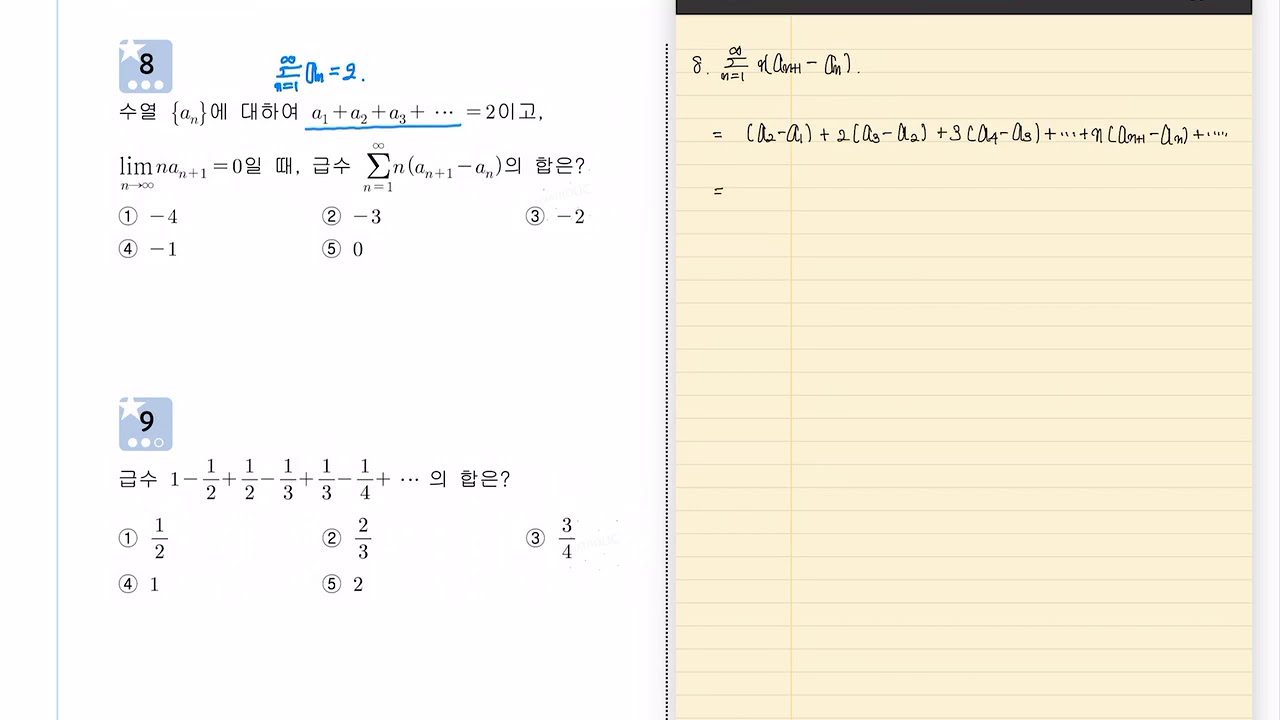 8
∞
Σ aₙ = 2.
n=1
수열 {aₙ}에 대하여 a₁+a₂+a₃+ ⋯ =2이고,
lim naₙ₊₁=0일 때, 급수 Σ n(aₙ₊₁−aₙ)의 합은?
n→∞ ∞ n=1
① −4 ② −3 ③ −2
④ −1 ⑤ 0
9
급수 1−1/2+1/2−1/3+1/3−1/4+ ⋯ 의 합은?
① 1/2 ② 2/3 ③ 3/4
④ 1 ⑤ 2
8. ∞ Σ n=1 n(aₙ₊₁−aₙ).
= (a₂−a₁)+2(a₃−a₂)+3(a₄−a₃)+⋯+n(aₙ₊₁−aₙ)+⋯⋯
=